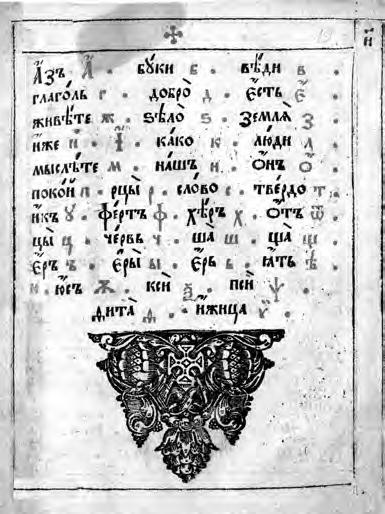 А҆́зъ а҆ · бꙋ́ки б · вѣ́ди в ·
глаго́ль г · добро̀ д · є҆́сть є҆ ·
живѣ́те ж · ѕѣло̀ ѕ · землѧ̀ з ·
и҆́же и҆ · і҆ · ка́ко к · лю́ди л ·
мыслѣ́те м · на́шъ н · ѻ҆́нъ ѻ҆ ·
поко́й п · рцы̀ р · сло́во с · тве́рдо т ·
и҆́къ ꙋ · фе́ртъ ф · хѣ́ръ х · ѿ́тъ ѿ
цы̀ ц · че́рвь ч · ша̀ ш · ща̀ щ ·
є҆́ръ ъ · є҆ры̀ ы · є҆́рь ь · ꙗ҆́ть ѣ ·
ю · ю҆́съ ѫ · ксѝ ѯ · псѝ ѱ ·
ѳита̀ ѳ · и҆́жица ѵ ·